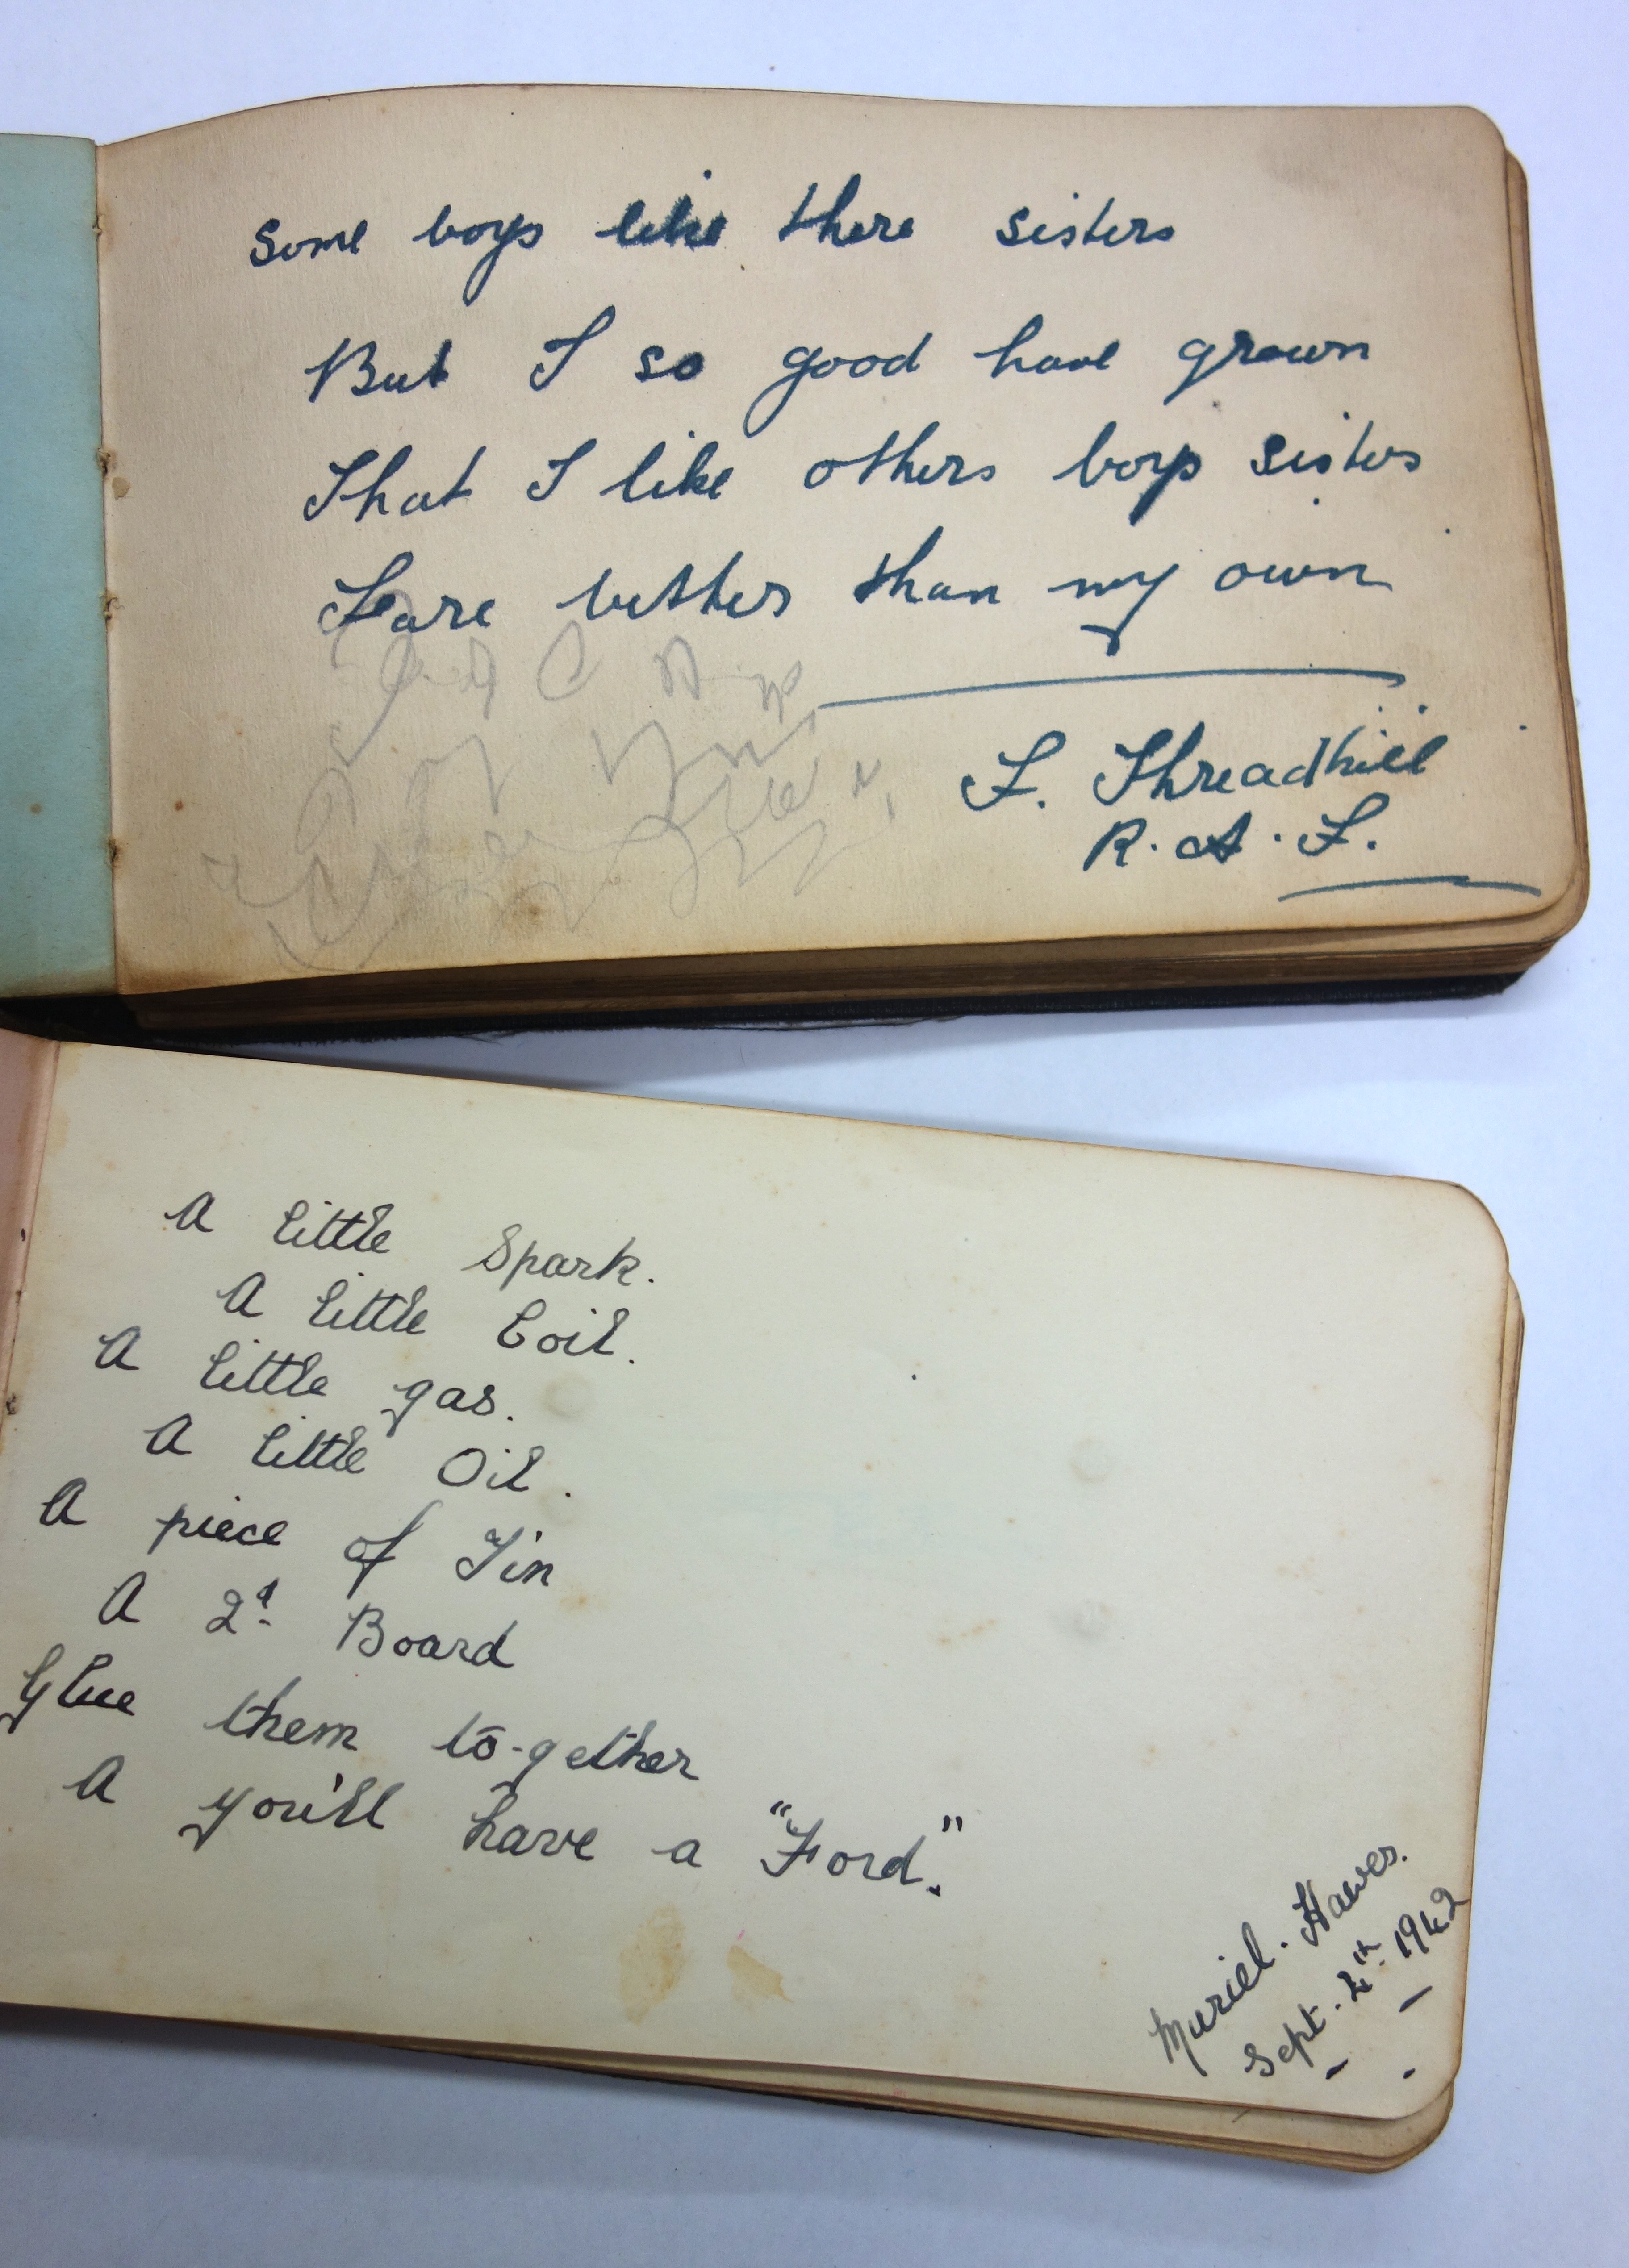 Some boys like there sisters
But I so good have grown
That I like others boys sisters
Fare bether than my own
F. Threadhill
R.A.F.
A little Spark.
A little Coil.
A little gas.
A little Oil.
A piece of Tin
A 2ᵈ Board
Glue them to-gether
A you'll have a "Ford."
Muriel. Hawes.
Sept. 2ⁿ 1942